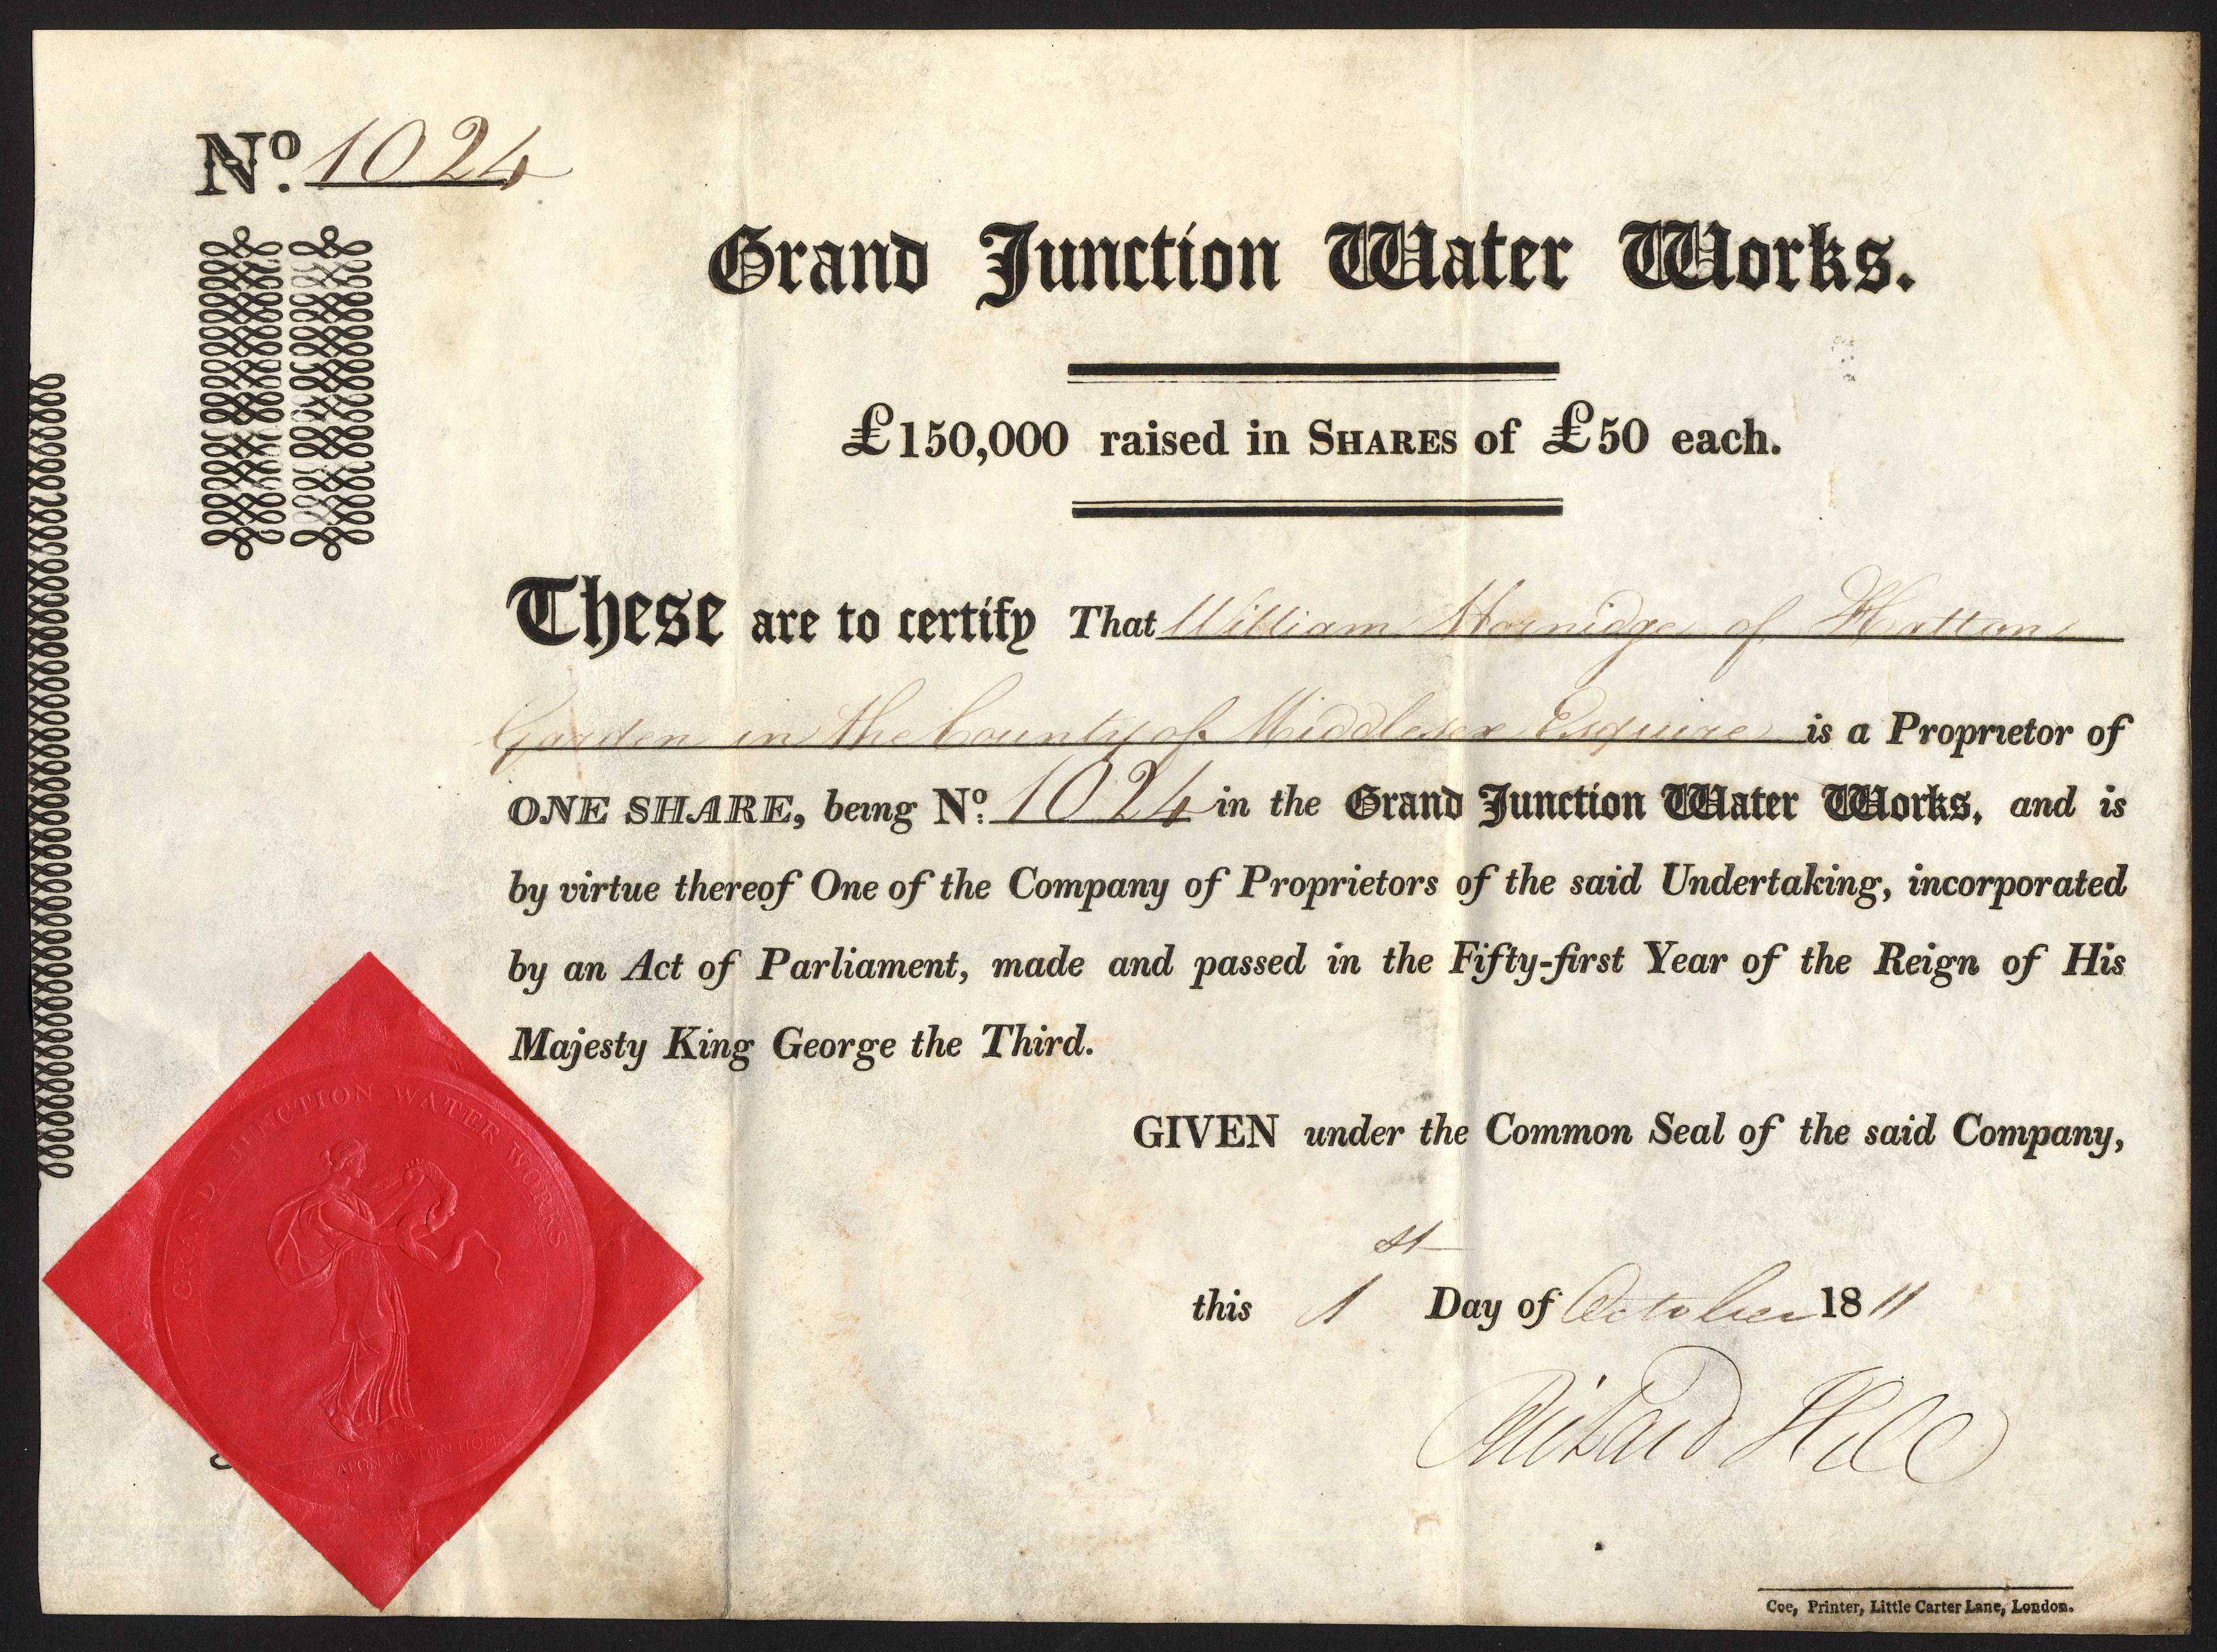 Nº. 1024
Grand Junction Water Works.
£150,000 raised in SHARES of £50 each.
These are to certify That William Hornidge of Hatton
Garden in the County of Middlesex Esquire is a Proprietor of
ONE SHARE, being Nº. 1024 in the Grand Junction Water Works, and is
by virtue thereof One of the Company of Proprietors of the said Undertaking, incorporated
by an Act of Parliament, made and passed in the Fifty-first Year of the Reign of His
Majesty King George the Third.
GIVEN under the Common Seal of the said Company,
this 1st Day of October 1811
Hill
GRAND JUNCTION WATER WORKS
Coe, Printer, Little Carter Lane, London.